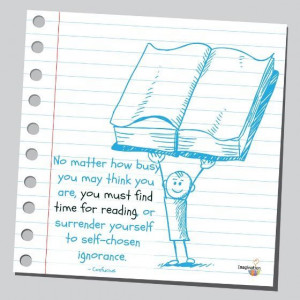 No matter how busy
you may think you
are, you must find
time for reading, or
surrender yourself
to self-chosen
ignorance.
- Confucius
imagination